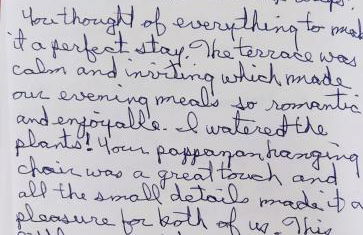 You thought of everything to mak
it a perfect stay. The terrace was
calm and inviting which made
our evening meals so romantic
and enjoyable. I watered the
plants! Your pappasan hanging
chair was a great touch and
all the small details made it a
pleasure for both of us. This